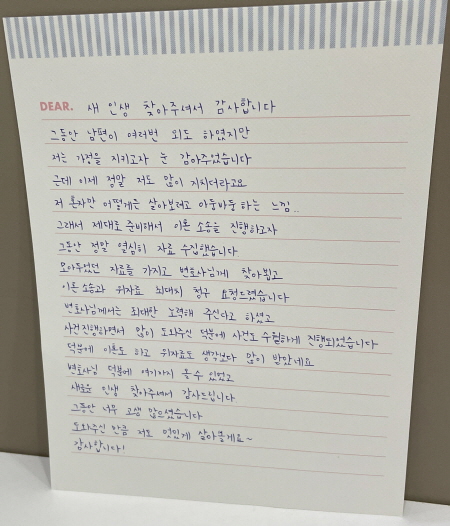 DEAR. 새 인생 찾아주셔서 감사합니다
그동안 남편이 여러번 외도 하였지만
저는 가정을 지키고자 눈 감아주었습니다
근데 이제 정말 저도 많이 지치더라고요
저 혼자만 어떻게든 살아보려고 아둥바둥 하는 느낌..
그래서 제대로 준비해서 이혼 소송을 진행하고자
그동안 정말 열심히 자료 수집했습니다
모아두었던 자료를 가지고 변호사님께 찾아뵙고
이혼소송과 위자료 최대치 청구 요청드렸습니다
변호사님께서는 최대한 노력해 주신다고 하셨고
사건진행하면서 많이 도와주신 덕분에 사건도 수월하게 진행되었습니다
덕분에 이혼도 하고 위자료도 생각보다 많이 받았네요
변호사님 덕분에 여기까지 올 수 있었고
새로운 인생 찾아주셔서 감사드립니다
그동안 너무 고생 많으셨습니다
도와주신 만큼 저도 멋있게 살아볼게요~
감사합니다!